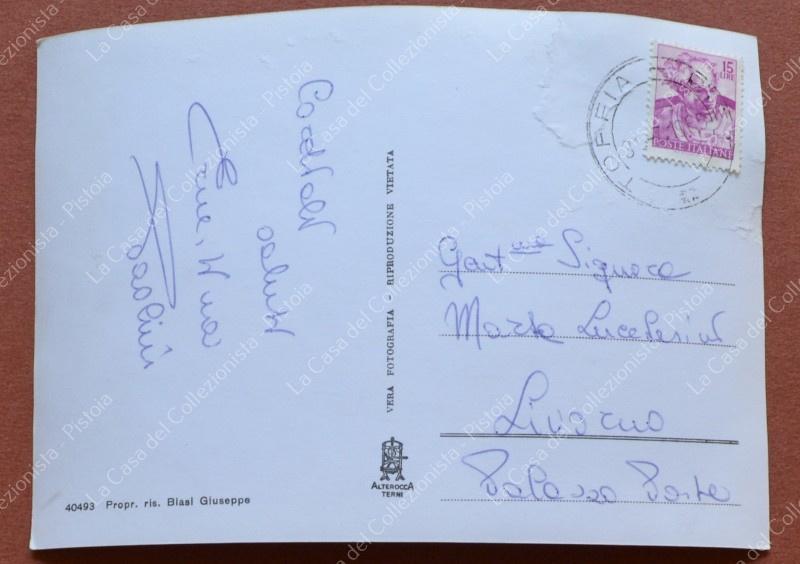 Cordiali
saluti
Paolini
VERA FOTOGRAFIA - RIPRODUZIONE VIETATA
15
LIRE
POSTE ITALIANE
TORFIA
Gent.ma Signora
Maria Lucchesini
Livorno
Palazzo Poste
ALTEROCCA
TERNI
40493 Propr. ris. Biasi Giuseppe
La Casa del Collezionista - Pistoia